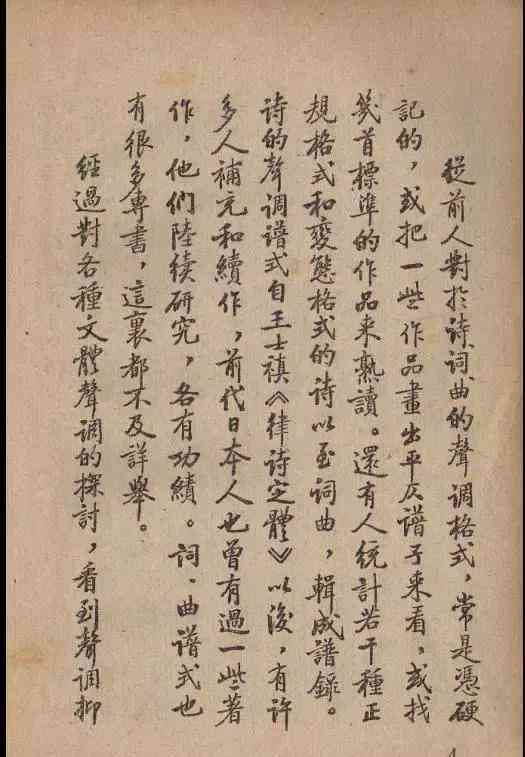 從前人對於诗、词、曲的聲调格式，常是憑硬
記的，或把一些作品畫出平仄谱子來看，或找
幾首標準的作品来熟讀。還有人统計若干種正
規格式和變態格式的诗以至词曲，輯成譜錄。
诗的聲调谱式自王士禛《律诗定體》以後，有許
多人補充和續作，前代日本人也曾有過一些著
作，他們陸续研究，各有功績。词、曲谱式也
有很多專書，這裏都不及詳舉。
經過對各種文體聲调的探討，看到聲调抑
1